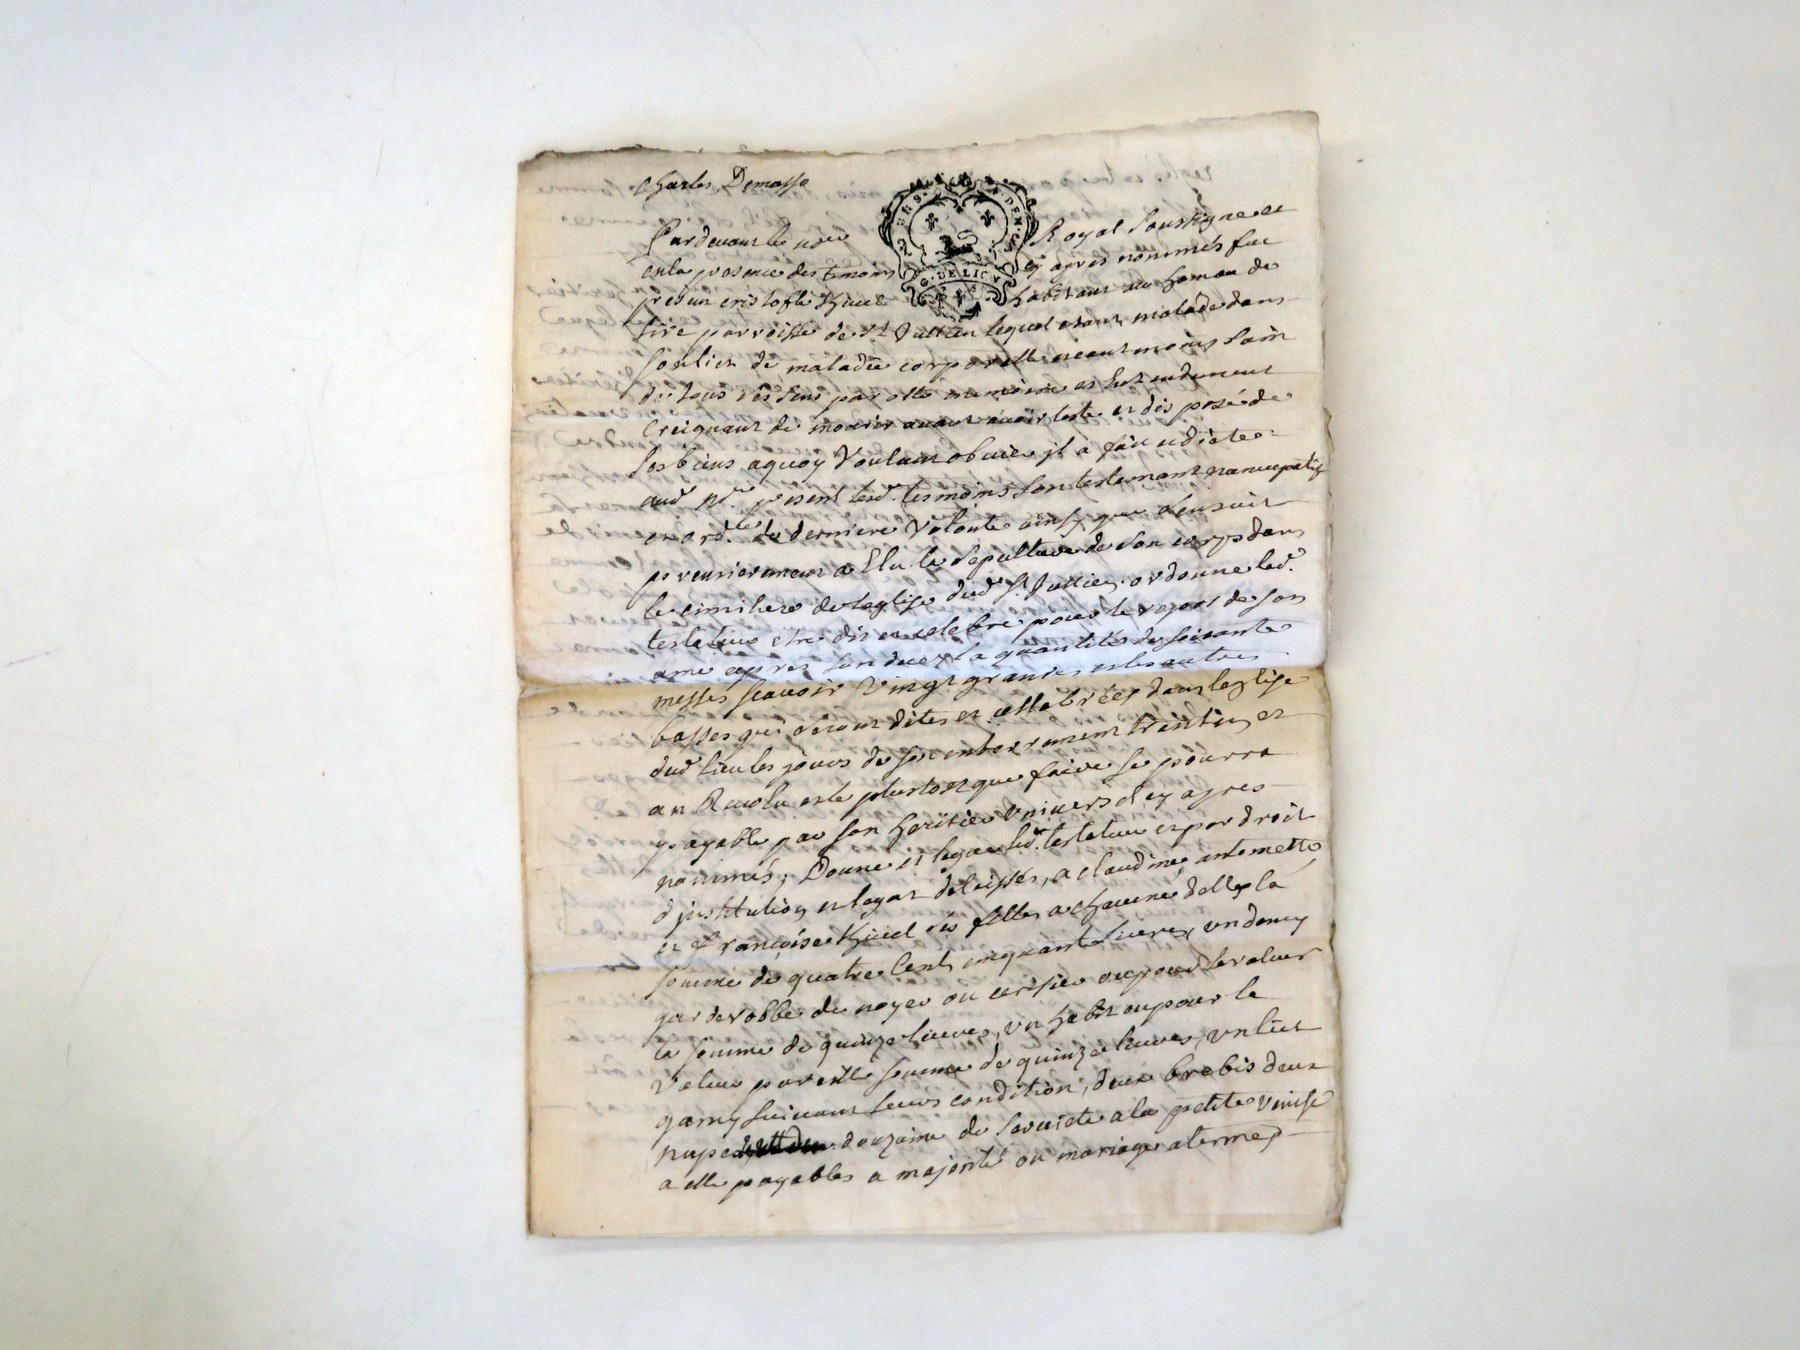 Charles Demasso
Pardevant le no.re Royal soussigne et
en la presence des temoins cy apres nommés fut
present cristofle habitant au hameau de
parroisse de st Jullien lequel etant malade dans
son lict de maladie corporelle neantmoins sain
de tous ses sens parolle memoire et entendement
Creignant de mourir avant avoir testé et disposé de
ses biens aquoy Voulant obvier il a fait et dicté
aud. nre. present lesd. tesmoins son testement nuncupatif
et ord.ce de derniere Volonté ainsy que sensuit
premierement a Elu la sepulture de son corps dans
le cimitiere de leglise dud. St Jullien ordonne led.
testateur etre dit et celebré pour le repos de son
ame apres son deces la quantité de soixante
messes scavoir Vingt grandes et les autres
basses qui seront dites et cellebrées dans leglise
dud. lieu les jours de son enterrement trentin, et
an Revolu et le plustost que faire se pourra
payable par son heritier Universel cy apres
nommés; Donne et legue led. testateur et par droit
dinstitution et legat delaisse, a claudine, antomette
et francoise ses filles a chacune delles la
somme de quatre Cent cinquante livres, un demy
garderobbe de noyer ou cerisier ou pour le valeur
la somme de quinze livres, un habit ou pour la
Valeur pareille somme de quinze livres, un lict
garny suivant leurs condition, deux brebis deux
napes douzaine de serviete a la petite Venise
a elle payables a majorité ou mariage a termes